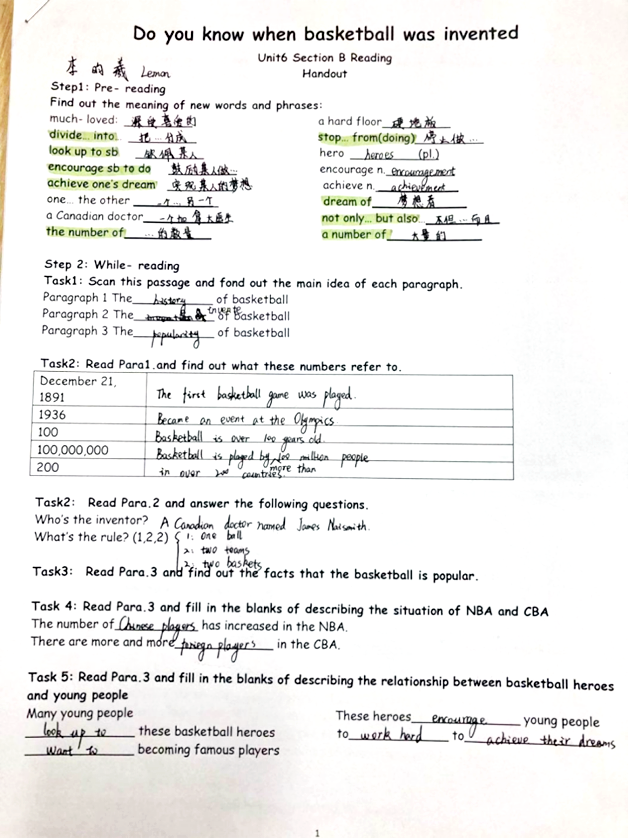 Do you know when basketball was invented
Unit6 Section B Reading
Handout
李 昀 羲 Lemon
Step1: Pre- reading
Find out the meaning of new words and phrases:
much- loved: 深受喜爱的
a hard floor 硬地板
divide... into. 把...分成
stop... from(doing) 停止做...
look up to sb 钦佩某人
hero heroes (pl.)
encourage sb to do 鼓励某人做...
encourage n. encouragement
achieve one's dream 实现某人的梦想
achieve n. achievement
one... the other 一个...另一个
dream of 梦想着
a Canadian doctor 一个加拿大医生
not only... but also 不但...而且
the number of ...的数量
a number of 大量的
Step 2: While- reading
Task1: Scan this passage and fond out the main idea of each paragraph.
Paragraph 1 The history of basketball
Paragraph 2 The of basketball
Paragraph 3 The popularity of basketball
Task2: Read Para1.and find out what these numbers refer to.
December 21,
1891 The first basketball game was played.
1936 Became an event at the Olympics.
100 Basketball is over 100 years old.
100,000,000 Basketball is played by more than 100 million people
200 in over 200 countries.
Task2: Read Para.2 and answer the following questions.
Who's the inventor? A Canadian doctor named James Naismith.
What's the rule? (1,2,2) 1: one ball
2: two teams
2: two baskets
Task3: Read Para.3 and find out the facts that the basketball is popular.
Task 4: Read Para.3 and fill in the blanks of describing the situation of NBA and CBA
The number of Chinese players has increased in the NBA.
There are more and more foreign players in the CBA.
Task 5: Read Para.3 and fill in the blanks of describing the relationship between basketball heroes
and young people
Many young people
look up to these basketball heroes
want to becoming famous players
These heroes encourage young people
to work hard to achieve their dreams
1